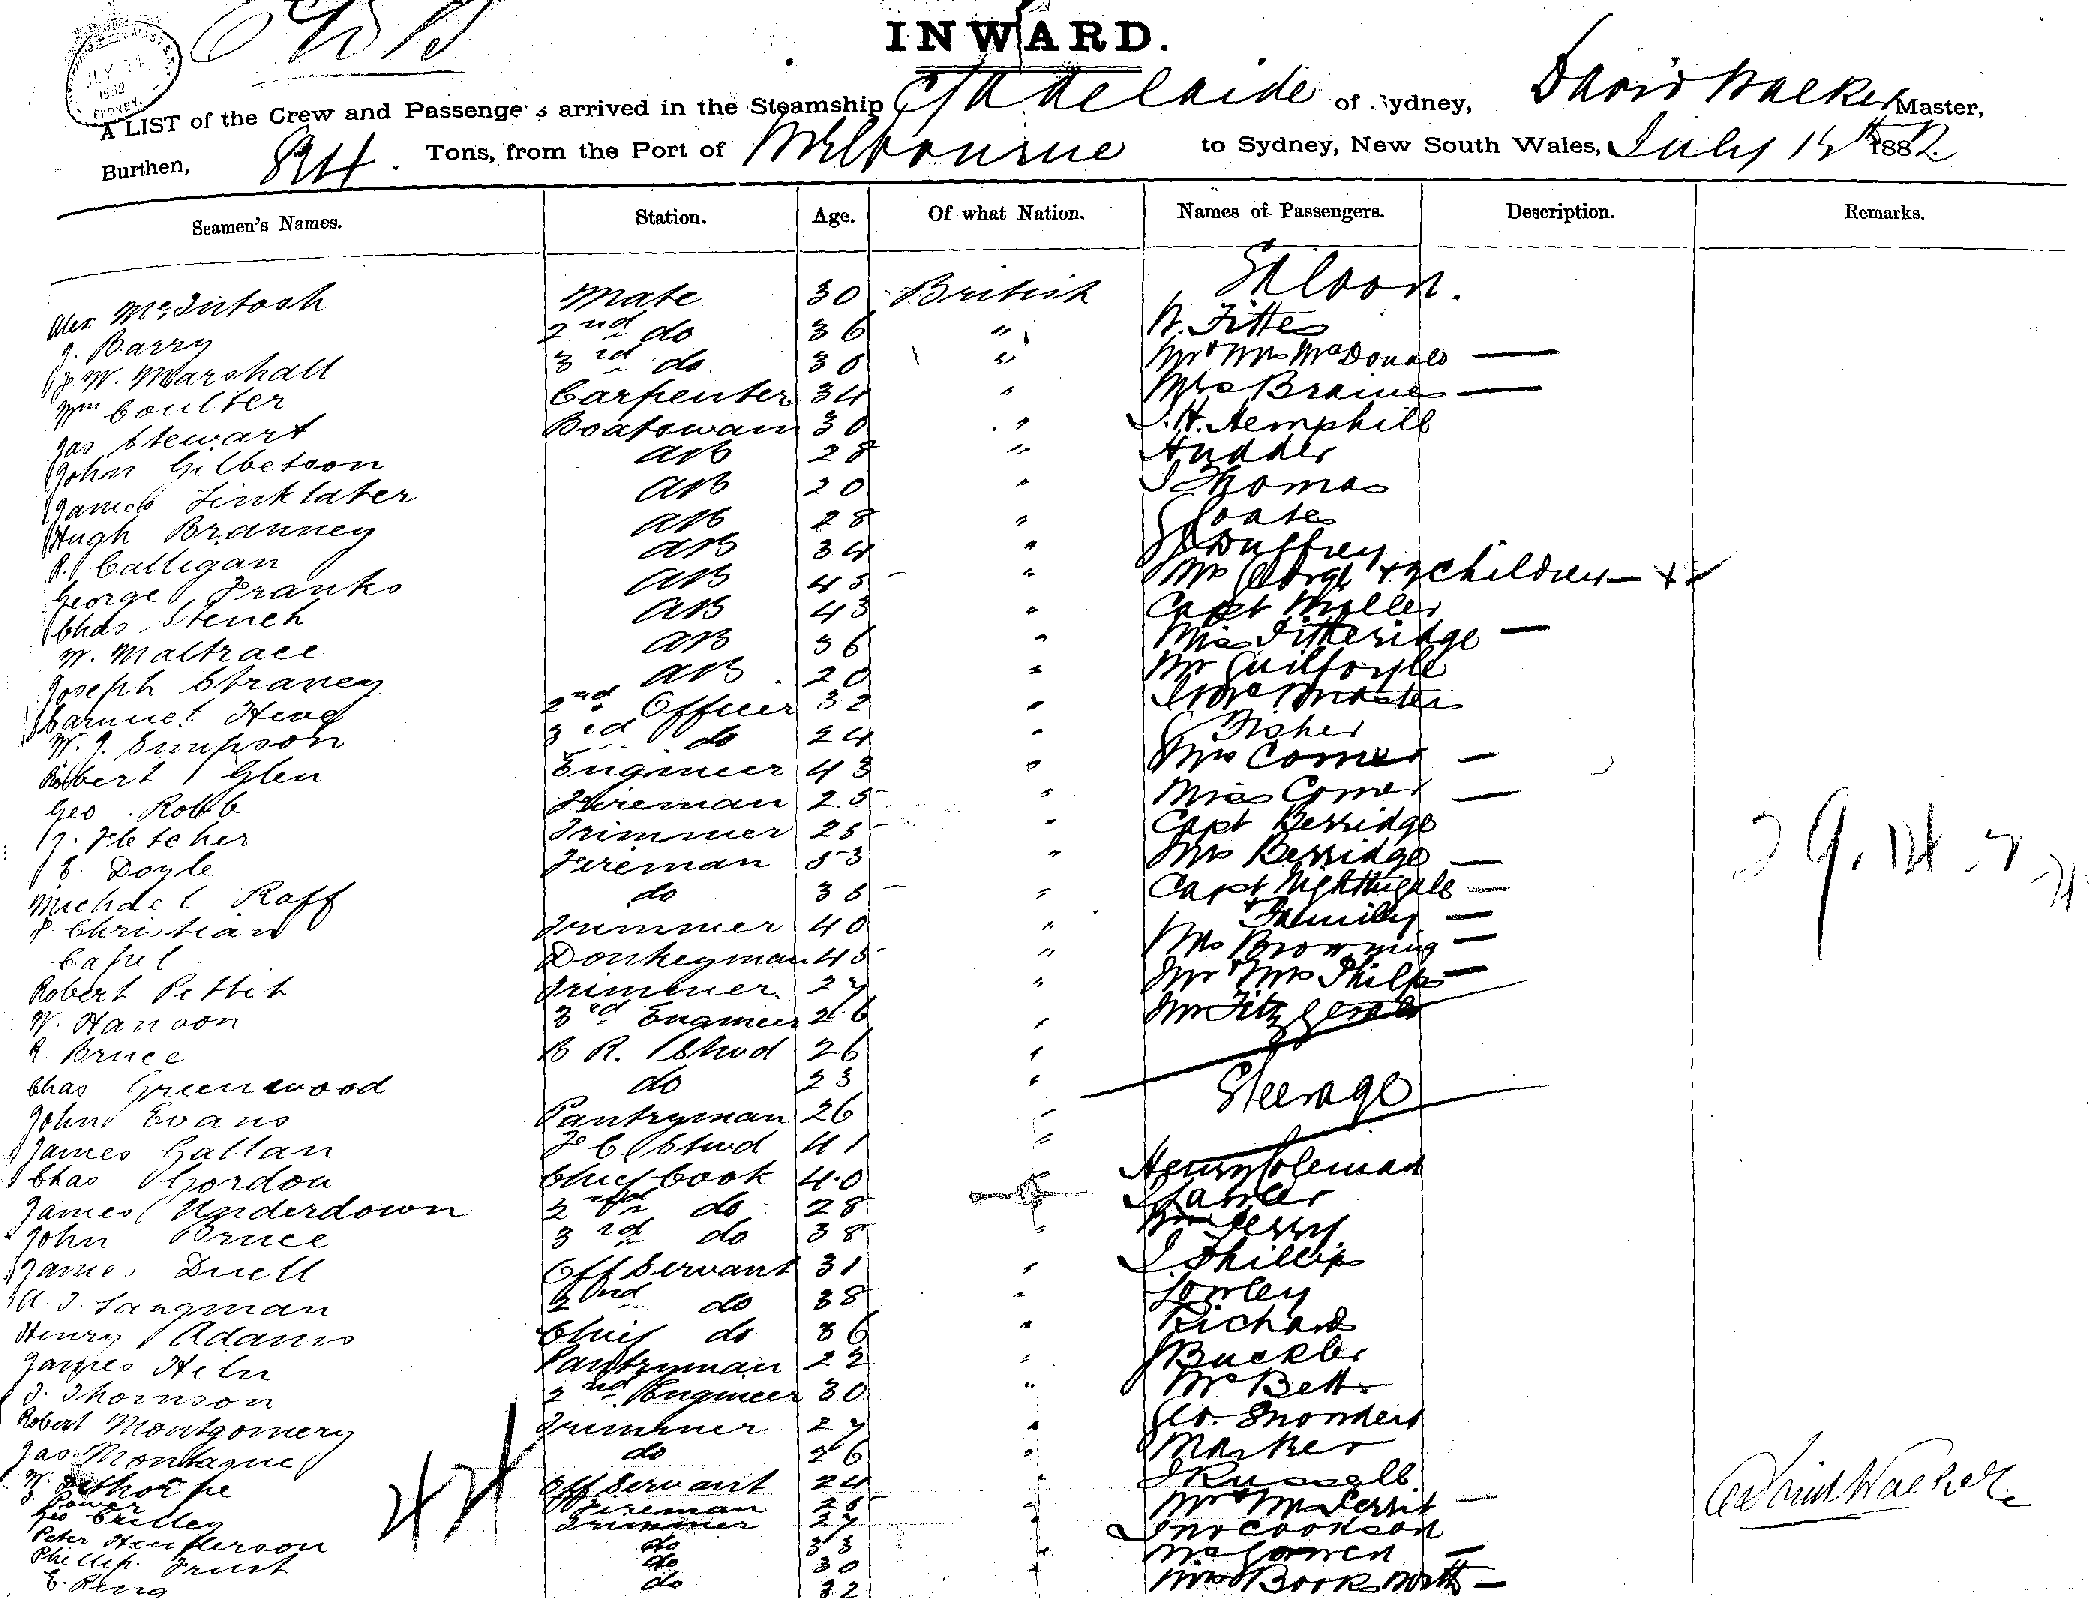 INWARD.
A LIST of the Crew and Passengers arrived in the Steamship Adelaide of Sydney, David Walker Master,
Burthen, 824. Tons, from the Port of Melbourne to Sydney, New South Wales, July 1882
Seamen's Names. Station. Age. Of what Nation. Names of Passengers. Description. Remarks.
Saloon.
Alex McIntosh Mate 30 British
J. Barry 2nd do 36 " W. Fittes
J. W. Marshall 3rd do 30 " Mr & Mrs McDonald —
Wm Coulter Carpenter 34 " Mrs Braine —
Jas Stewart Boatswain 30 " J. H. Hemphill
John Gilbetson AB 28 " Hudder
James Tinklater AB 20 " J Thomas
Hugh Branney AB 28 " Coates
R. Calligan AB 34 " Duffrey
George Franks AB 45 " Mrs George & 2 children —
Chas Stench AB 43 " Capt Miller
W. Maltrace AB 36 " Miss Titheridge —
Joseph Straney AB 20 " Mr Guilfoyle
Samuel Head 2nd Officer 32 " J McMaster
W. J. Simpson 3rd do 24 Fisher
Robert Glen Engineer 43 " Mrs Comer —
Geo Robb Fireman 25 " Miss Comer —
J. Fletcher Trimmer 25 " Capt Berridge
J. Doyle Fireman 53 " Mrs Berridge —
Michael Raff do 36 " Capt Nightingale —
P. Christian Trimmer 40 " & Family —
Capel Donkeyman 45 " Mrs Browning —
Robert Pettit Trimmer 27 " Mr & Mrs Philps —
W. Hanson 3rd Engineer 26 " Mr Fitzgerald
R. Bruce B R. Stwd 26 "
Chas Greenwood do 23 " Steerage
John Evans Pantryman 26 "
James Gallan F C Stwd 41 "
Chas Gordon Chief Cook 40 Henry Coleman
James Underdown 2nd do 28 Lawler
John Bruce 3rd do 38 " Wm Perry
James Duell Off Servant 31 " J Phillips
A. J. Langman 2nd do 38 " Lowley
Henry Adams Chief do 36 Richard
James Helu Pantryman 22 " J Buckler
J. Thomson 2nd Engineer 30 " Mr Betts
Robert Montgomery Trimmer 27 " Geo. Snonders
Jas Montague do 26 " Marker
W. Off Servant 24 " J Russell
Fireman 25 " Mr & Mrs —
Geo Trimmer 27 " Jno Cookson
Peter Henderson do 33 "
Phillip Trust do 30 " Mrs —
E. King do 32
David Walker